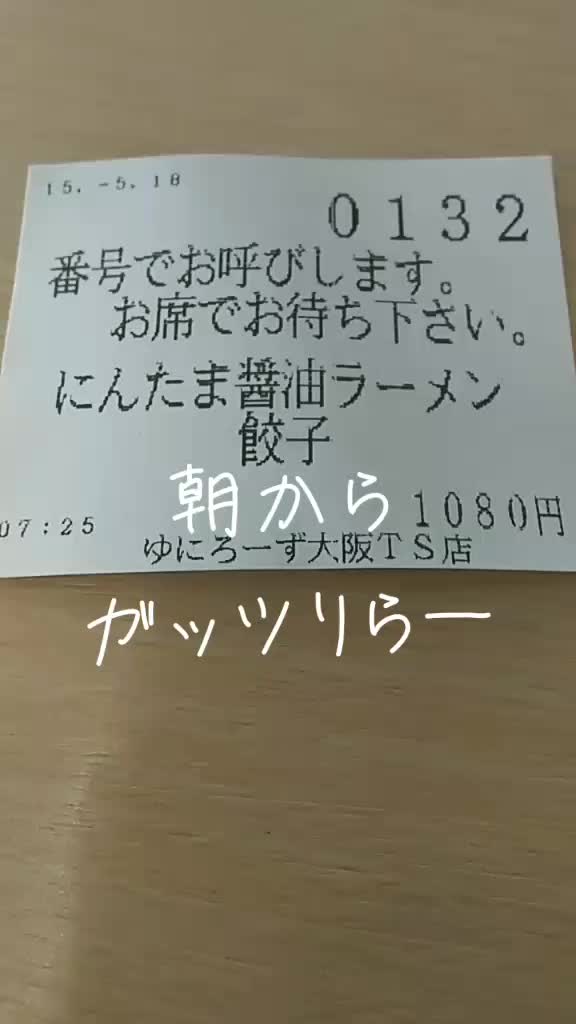 15.-5.18
0132
番号でお呼びします。
お席でお待ち下さい。
にんたま醤油ラーメン
餃子
朝から
1080円
07:25
ゆにろーず大阪TS店
ガッツリらー